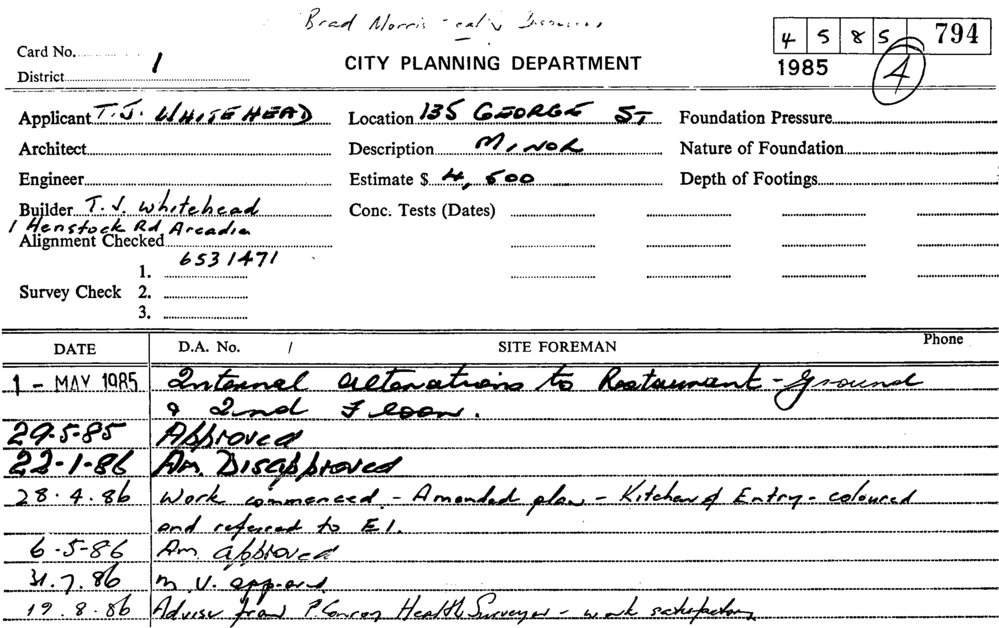 Brad Morris
4 5 8 5 794
Card No.
1985
4
District 1
CITY PLANNING DEPARTMENT
Applicant T. J. WHITEHEAD Location 135 GEORGE ST Foundation Pressure
Architect Description MINOR Nature of Foundation
Engineer Estimate $ 4,500 Depth of Footings
Builder T. J. Whitehead Conc. Tests (Dates)
1 Henstock Rd, Arcadia
Alignment Checked
6531471
1.
Survey Check 2.
3.
DATE D.A. No. / SITE FOREMAN Phone
1 - MAY 1985 Internal alterations to Restaurant - Ground
& 2nd Floor.
29-5-85 Approved
22-1-86 Am. Disapproved
28.4.86 Work commenced - Amended plan - Kitchen & Entry - coloured
and referred to E1.
6-5-86 Am approved
31.7.86 M.V. approved
19.8.86 Advise from P. Conroy Health Surveyor - work satisfactory